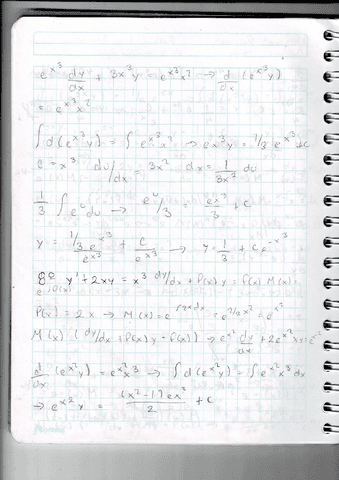 e^{x^3} dy/dx + 3x^2 y = e^{x^3} x^2 → d/dx (e^{x^3} y)
= e^{x^3} x^2
∫ d(e^{x^3} y) = ∫ e^{x^3} x^2 → e^{x^3} y = 1/3 e^{x^3} + c
u = x^3 du/dx = 3x^2 dx = 1/3x^2 du
1/3 ∫ e^u du → e^u/3 = e^{x^3}/3 + c
y = 1/3 e^{x^3}/e^{x^3} + c/e^{x^3} → y = 1/3 + c e^{-x^3}
8: y' + 2xy = x^3 dy/dx + P(x)y = f(x) M(x) =
P(x) = 2x → M(x) = e^{∫2xdx} = e^{2/2 x^2} = e^{x^2}
M(x) (dy/dx + P(x)y = f(x)) → e^{x^2} dy/dx + 2e^{x^2} xy =
d/dx (e^{x^2} y) = e^{x^2} x^3 → ∫ d(e^{x^2} y) = ∫ e^{x^2} x^3 dx
→ e^{x^2} y = (x^2-1)e^{x^2}/2 + c